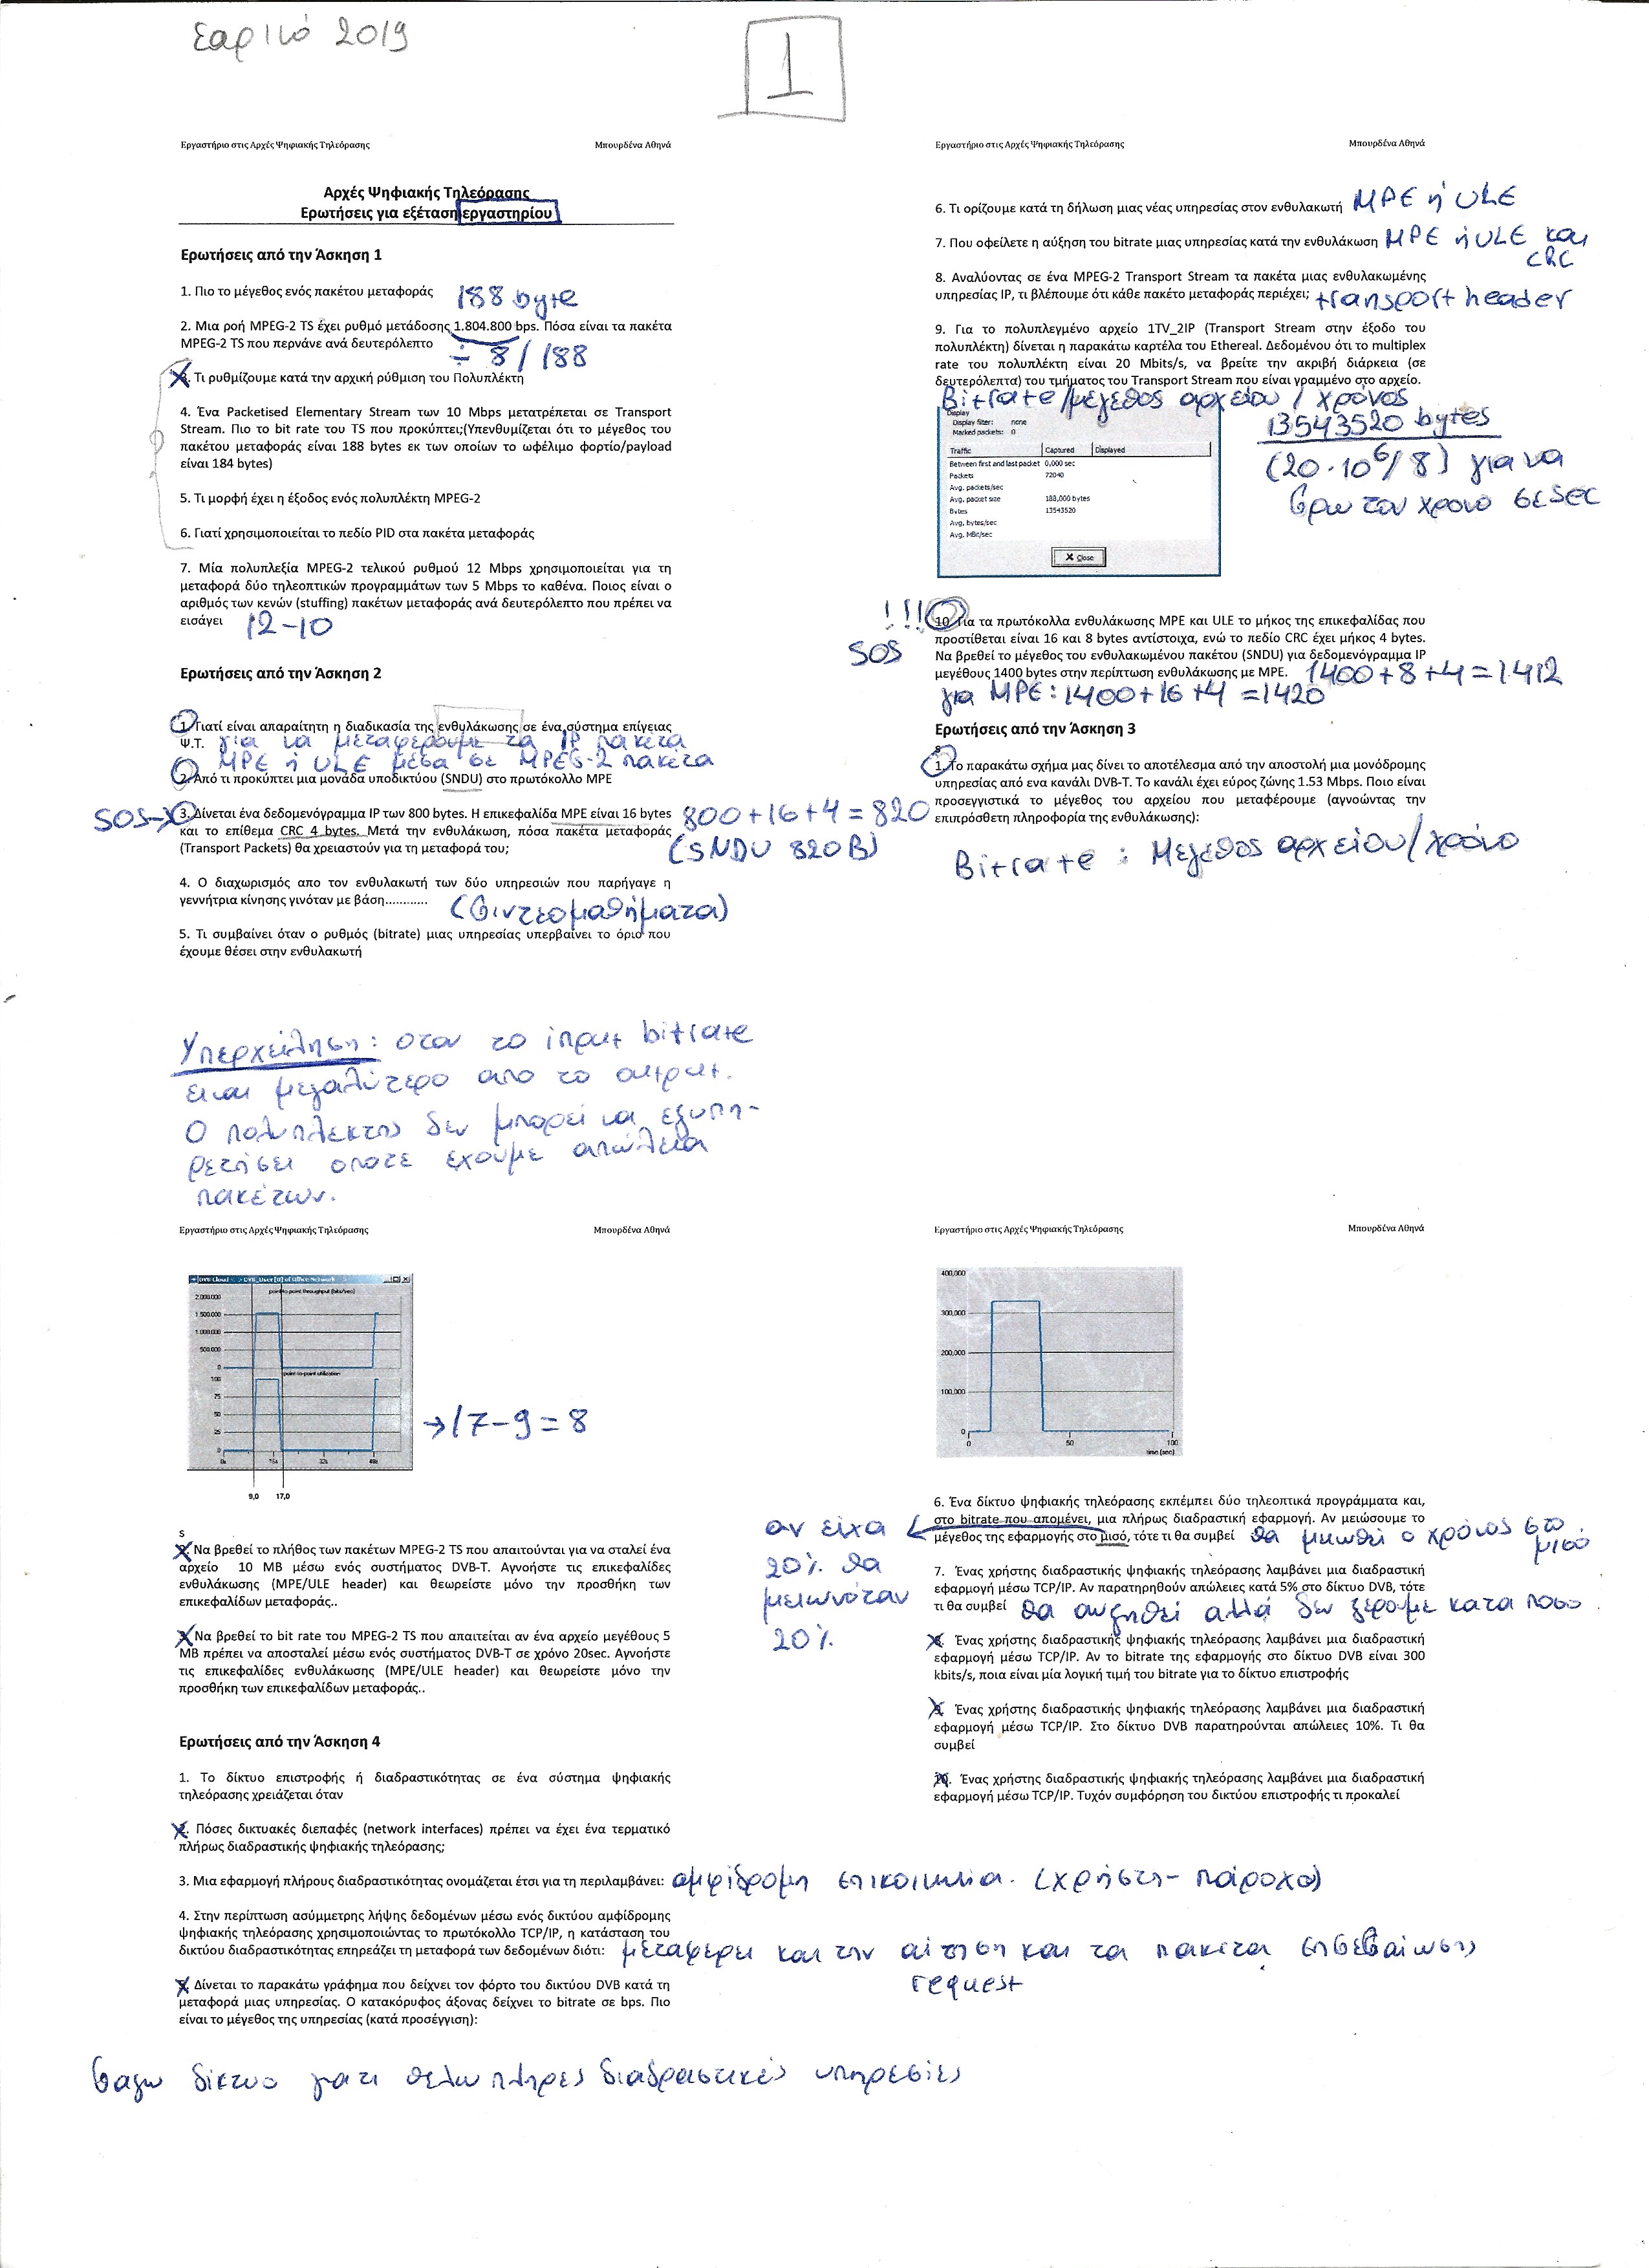 Εαρινό 2019
1
Εργαστήριο στις Αρχές Ψηφιακής Τηλεόρασης Μπουρδένα Αθηνά
Αρχές Ψηφιακής Τηλεόρασης
Ερωτήσεις για εξέταση εργαστηρίου
Ερωτήσεις από την Άσκηση 1
1. Πιο το μέγεθος ενός πακέτου μεταφοράς 188 byte
2. Μια ροή MPEG-2 TS έχει ρυθμό μετάδοσης 1.804.800 bps. Πόσα είναι τα πακέτα
MPEG-2 TS που περνάνε ανά δευτερόλεπτο ÷ 8 / 188
3. Τι ρυθμίζουμε κατά την αρχική ρύθμιση του Πολυπλέκτη
4. Ένα Packetised Elementary Stream των 10 Mbps μετατρέπεται σε Transport
Stream. Πιο το bit rate του TS που προκύπτει;(Υπενθυμίζεται ότι το μέγεθος του
πακέτου μεταφοράς είναι 188 bytes εκ των οποίων το ωφέλιμο φορτίο/payload
είναι 184 bytes)
5. Τι μορφή έχει η έξοδος ενός πολυπλέκτη MPEG-2
6. Γιατί χρησιμοποιείται το πεδίο PID στα πακέτα μεταφοράς
7. Μία πολυπλεξία MPEG-2 τελικού ρυθμού 12 Mbps χρησιμοποιείται για τη
μεταφορά δύο τηλεοπτικών προγραμμάτων των 5 Mbps το καθένα. Ποιος είναι ο
αριθμός των κενών (stuffing) πακέτων μεταφοράς ανά δευτερόλεπτο που πρέπει να
εισάγει 12-10
Ερωτήσεις από την Άσκηση 2
1. Γιατί είναι απαραίτητη η διαδικασία της ενθυλάκωσης σε ένα σύστημα επίγειας
Ψ.Τ. για να μεταφέρουμε τα IP πακέτα
MPE ή ULE μέσα σε MPEG-2 πακέτα
2. Από τι προκύπτει μια μονάδα υποδικτύου (SNDU) στο πρωτόκολλο MPE
SOS→ 3. Δίνεται ένα δεδομενόγραμμα IP των 800 bytes. Η επικεφαλίδα MPE είναι 16 bytes 800+16+4=820
και το επίθεμα CRC 4 bytes. Μετά την ενθυλάκωση, πόσα πακέτα μεταφοράς
(Transport Packets) θα χρειαστούν για τη μεταφορά του; (SNDU 820 B)
4. Ο διαχωρισμός απο τον ενθυλακωτή των δύο υπηρεσιών που παρήγαγε η
γεννήτρια κίνησης γινόταν με βάση............ (βιντεομαθήματα)
5. Τι συμβαίνει όταν ο ρυθμός (bitrate) μιας υπηρεσίας υπερβαίνει το όριο που
έχουμε θέσει στην ενθυλακωτή
Υπερχείληση: οταν το input bitrate
ειναι μεγαλύτερο απο το output.
Ο πολυπλεκτης δεν μπορεί να εξυπη-
ρετήσει οποτε έχουμε απώλεια
πακέτων.
Εργαστήριο στις Αρχές Ψηφιακής Τηλεόρασης Μπουρδένα Αθηνά
6. Τι ορίζουμε κατά τη δήλωση μιας νέας υπηρεσίας στον ενθυλακωτή MPE ή ULE
7. Που οφείλετε η αύξηση του bitrate μιας υπηρεσίας κατά την ενθυλάκωση MPE ή ULE και
CRC
8. Αναλύοντας σε ένα MPEG-2 Transport Stream τα πακέτα μιας ενθυλακωμένης
υπηρεσίας IP, τι βλέπουμε ότι κάθε πακέτο μεταφοράς περιέχει; transport header
9. Για το πολυπλεγμένο αρχείο 1TV_2IP (Transport Stream στην έξοδο του
πολυπλέκτη) δίνεται η παρακάτω καρτέλα του Ethereal. Δεδομένου ότι το multiplex
rate του πολυπλέκτη είναι 20 Mbits/s, να βρείτε την ακριβή διάρκεια (σε
δευτερόλεπτα) του τμήματος του Transport Stream που είναι γραμμένο στο αρχείο.
Bitrate/μέγεθος αρχείου / χρόνος
13543520 bytes
(20·10⁶/8) για να
βρω τον χρονο σε sec
Display
Display filter: none
Marked packets: 0
Traffic Captured Displayed
Between first and last packet 0,000 sec
Packets 72040
Avg. packets/sec
Avg. packet size 188,000 bytes
Bytes 13543520
Avg. bytes/sec
Avg. MBit/sec
Close
!!! 10. Για τα πρωτόκολλα ενθυλάκωσης MPE και ULE το μήκος της επικεφαλίδας που
SOS προστίθεται είναι 16 και 8 bytes αντίστοιχα, ενώ το πεδίο CRC έχει μήκος 4 bytes.
Να βρεθεί το μέγεθος του ενθυλακωμένου πακέτου (SNDU) για δεδομενόγραμμα IP
μεγέθους 1400 bytes στην περίπτωση ενθυλάκωσης με MPE. 1400+8+4=1412
για MPE: 1400+16+4=1420
Ερωτήσεις από την Άσκηση 3
s
1. Το παρακάτω σχήμα μας δίνει το αποτέλεσμα από την αποστολή μια μονόδρομης
υπηρεσίας από ενα κανάλι DVB-T. Το κανάλι έχει εύρος ζώνης 1.53 Mbps. Ποιο είναι
προσεγγιστικά το μέγεθος του αρχείου που μεταφέρουμε (αγνοώντας την
επιπρόσθετη πληροφορία της ενθυλάκωσης):
Bitrate : Μεγεθος αρχείου/χρόνο
Εργαστήριο στις Αρχές Ψηφιακής Τηλεόρασης Μπουρδένα Αθηνά
point-to-point throughput (bits/sec)
2.000.000
1.500.000
1.000.000
500.000
0
point-to-point utilization
100
75
50
25
0
0s 16s 32s 48s
9,0 17,0
→17-9=8
s
2. Να βρεθεί το πλήθος των πακέτων MPEG-2 TS που απαιτούνται για να σταλεί ένα
αρχείο 10 MB μέσω ενός συστήματος DVB-T. Αγνοήστε τις επικεφαλίδες
ενθυλάκωσης (MPE/ULE header) και θεωρείστε μόνο την προσθήκη των
επικεφαλίδων μεταφοράς..
Να βρεθεί το bit rate του MPEG-2 TS που απαιτείται αν ένα αρχείο μεγέθους 5
MB πρέπει να αποσταλεί μέσω ενός συστήματος DVB-T σε χρόνο 20sec. Αγνοήστε
τις επικεφαλίδες ενθυλάκωσης (MPE/ULE header) και θεωρείστε μόνο την
προσθήκη των επικεφαλίδων μεταφοράς..
Ερωτήσεις από την Άσκηση 4
1. Το δίκτυο επιστροφής ή διαδραστικότητας σε ένα σύστημα ψηφιακής
τηλεόρασης χρειάζεται όταν
2. Πόσες δικτυακές διεπαφές (network interfaces) πρέπει να έχει ένα τερματικό
πλήρως διαδραστικής ψηφιακής τηλεόρασης;
3. Μια εφαρμογή πλήρους διαδραστικότητας ονομάζεται έτσι για τη περιλαμβάνει: αμφίδρομη επικοινωνια. (χρήστη- πάροχο)
4. Στην περίπτωση ασύμμετρης λήψης δεδομένων μέσω ενός δικτύου αμφίδρομης
ψηφιακής τηλεόρασης χρησιμοποιώντας το πρωτόκολλο TCP/IP, η κατάσταση του
δικτύου διαδραστικότητας επηρεάζει τη μεταφορά των δεδομένων διότι: μεταφερει και την αίτηση και τα πακετα επιβεβαίωσης
request
5. Δίνεται το παρακάτω γράφημα που δείχνει τον φόρτο του δικτύου DVB κατά τη
μεταφορά μιας υπηρεσίας. Ο κατακόρυφος άξονας δείχνει το bitrate σε bps. Πιο
είναι το μέγεθος της υπηρεσίας (κατά προσέγγιση):
βαζω δίκτυο γιατι θελω πληρες διαδραστικές υπηρεσίες
Εργαστήριο στις Αρχές Ψηφιακής Τηλεόρασης Μπουρδένα Αθηνά
400,000
300,000
200,000
100,000
0
0 50 100
time (sec)
6. Ένα δίκτυο ψηφιακής τηλεόρασης εκπέμπει δύο τηλεοπτικά προγράμματα και,
στο bitrate που απομένει, μια πλήρως διαδραστική εφαρμογή. Αν μειώσουμε το
μέγεθος της εφαρμογής στο μισό, τότε τι θα συμβεί θα μειωθεί ο χρόνος στο
μισό
αν είχα
20% θα
μειωνόταν
20%
7. Ένας χρήστης διαδραστικής ψηφιακής τηλεόρασης λαμβάνει μια διαδραστική
εφαρμογή μέσω TCP/IP. Αν παρατηρηθούν απώλειες κατά 5% στο δίκτυο DVB, τότε
τι θα συμβεί θα αυξηθεί αλλά δεν ξέρουμε κατα ποσο.
8. Ένας χρήστης διαδραστικής ψηφιακής τηλεόρασης λαμβάνει μια διαδραστική
εφαρμογή μέσω TCP/IP. Αν το bitrate της εφαρμογής στο δίκτυο DVB είναι 300
kbits/s, ποια είναι μία λογική τιμή του bitrate για το δίκτυο επιστροφής
9. Ένας χρήστης διαδραστικής ψηφιακής τηλεόρασης λαμβάνει μια διαδραστική
εφαρμογή μέσω TCP/IP. Στο δίκτυο DVB παρατηρούνται απώλειες 10%. Τι θα
συμβεί
10. Ένας χρήστης διαδραστικής ψηφιακής τηλεόρασης λαμβάνει μια διαδραστική
εφαρμογή μέσω TCP/IP. Τυχόν συμφόρηση του δικτύου επιστροφής τι προκαλεί